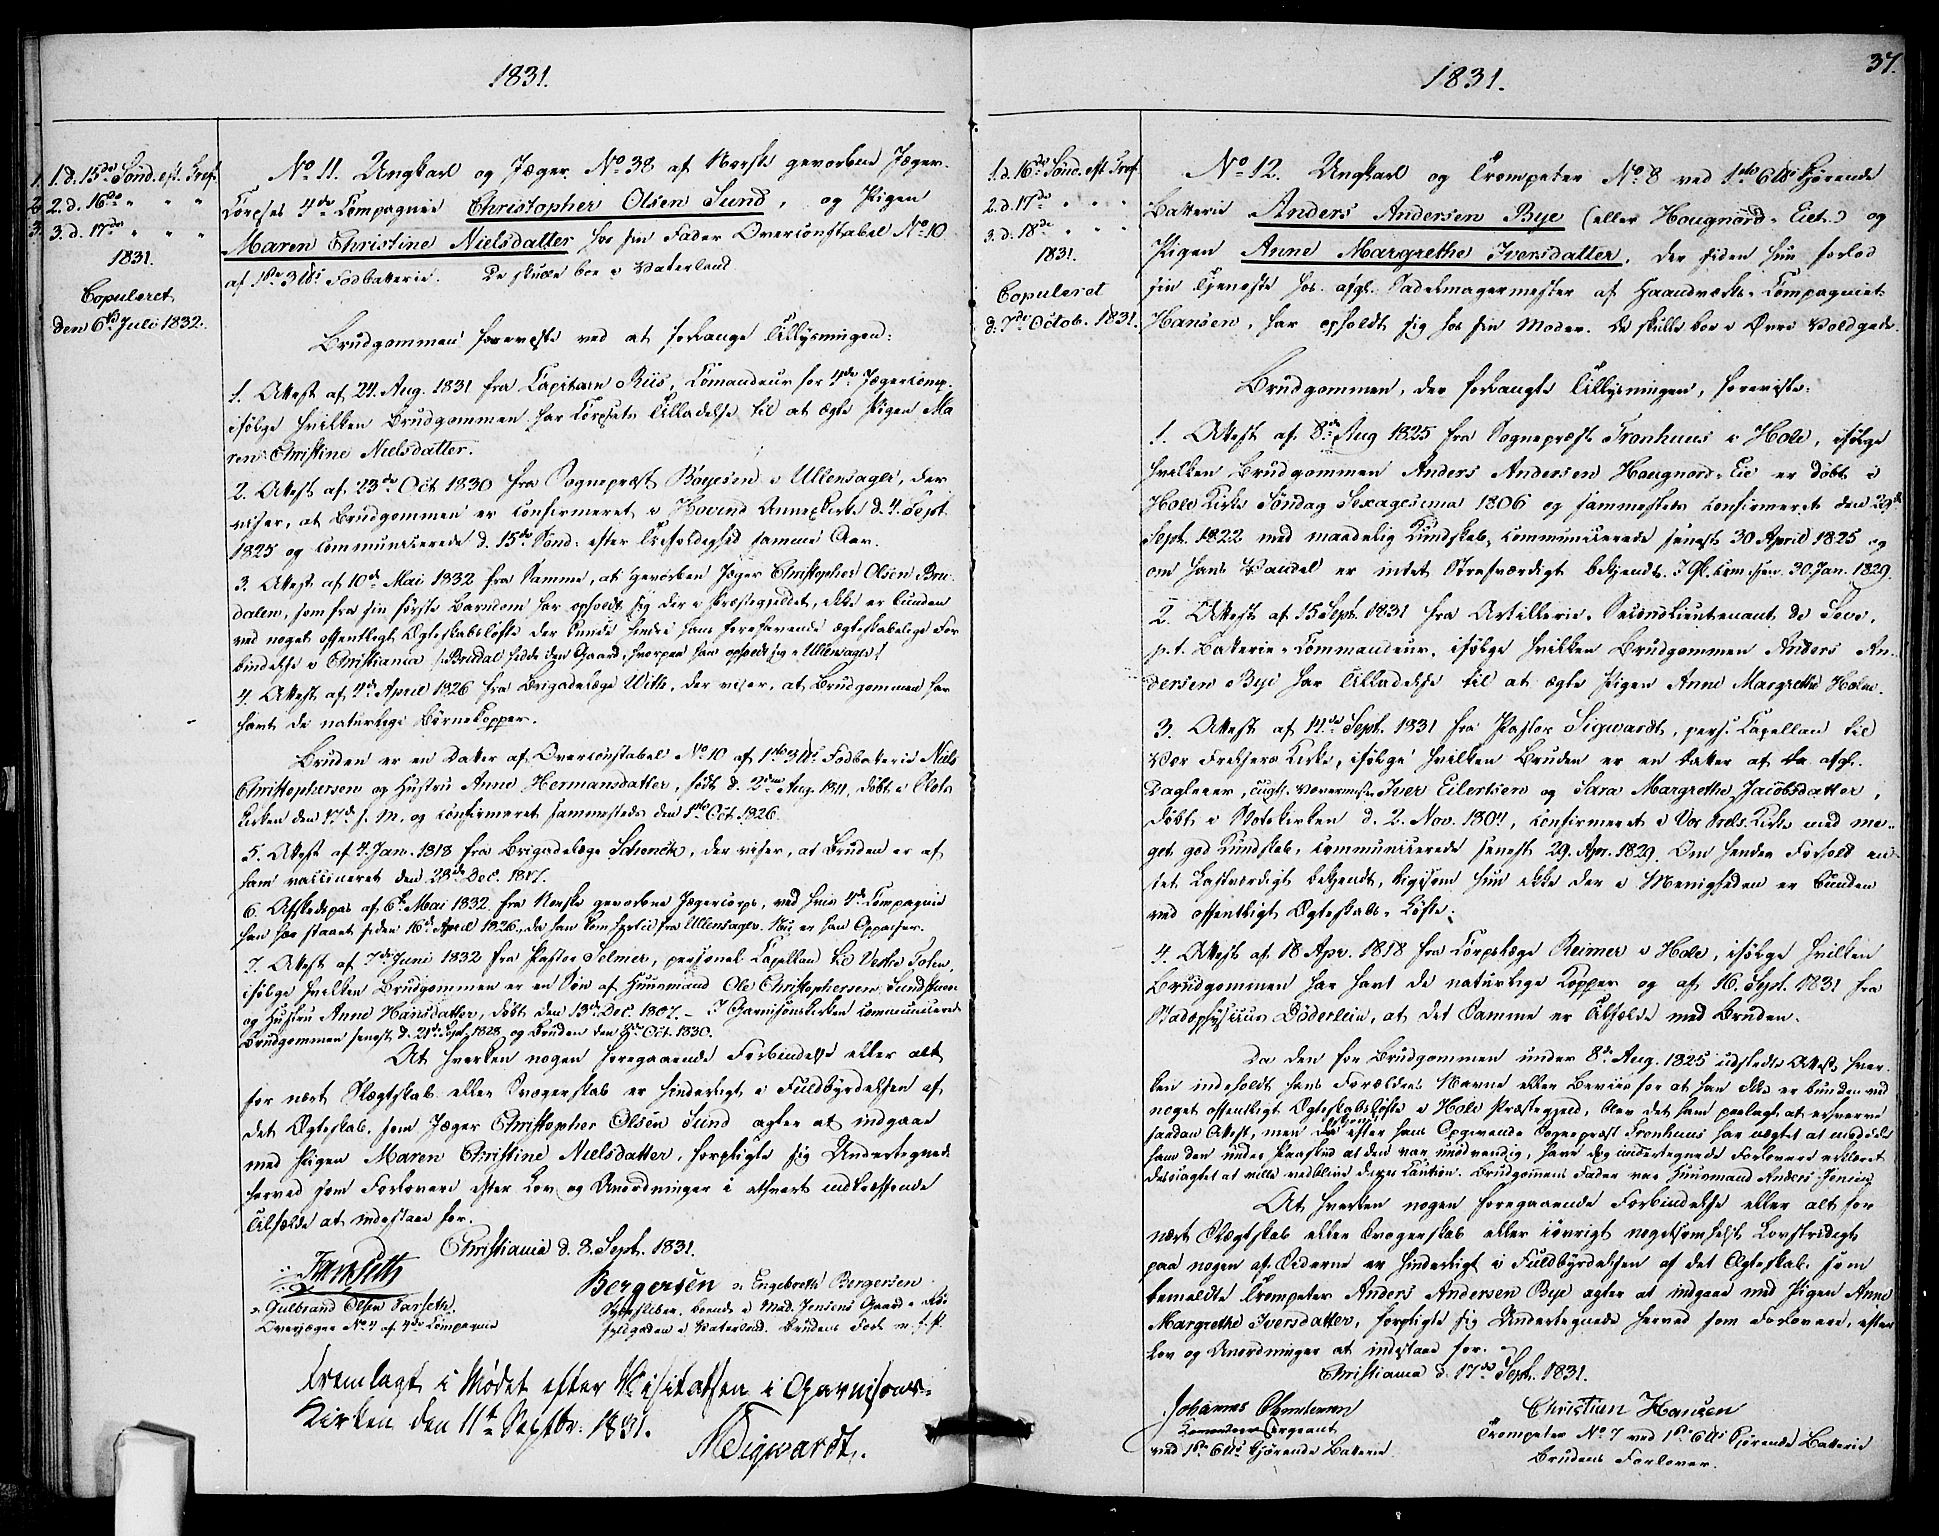 1831.
1. 1. d. 15de Sønd. eft. Tref.
2. 2. d. 16de " " "
3. 3. d. 17de " " "
1831.
Copuleret
den 6te Juli 1832.
No 11. Ungkarl og Jæger No 38 af Norske gevorbne Jæger-
Corpses 4de Compagnie Christopher Olsen Sund, og Pigen
Maren Christine Nielsdatter hos sin Fader Overconstabel No 10
af 1ste 3 lds Fodbatterie. De skulle boe i Vaterland.
Brudgommen foreviste ved at forlange Tillysningen:
1. Attest af 24. Aug. 1831 fra Capitain Riis, Comandeur for 4de Jægercomp.
ifølge hvilken Brudgommen har Corpsets Tilladelse til at ægte Pigen Ma
ren Christine Nielsdatter.
2. Attest af 23de Oct 1830 fra Sognepræst Boyesen i Ullensager, der
viser, at Brudgommen er confirmeret i Hovind Annexkirke d. 4. Sept.
1825 og communicerede d. 15de Sønd. efter Trefoldighed samme Aar.
3. Attest af 10de Mai 1832 fra Samme, at gevorben Jæger Christopher Olsen Bru-
dalen, som fra sin første Barndom har opholdt sig der i Præstegjeldet, ikke er bunden
ved noget offentligt Ægteskabsløfte der kunde hindre hans forehavende ægteskabelige For
bindelse i Christiania /: Brudal hedde den Gaard, hvorpaa han opholdt sig i Ullensager :/
4. Attest af 4de April 1826 fra Brigadelæge With, der viser, at Brudgommen har
havt de naturlige Børnekopper.
Bruden er en Datter af Overconstabel No 10 af 1ste 3 lds Fodbatterie Niels
Christophersen og Hustru Anne Hermansdatter, født d. 2den Aug. 1811, døbt i Slots
kirken den 17de s. M. og confirmeret sammesteds den 1ste Oct 1826.
5. Attest af 4. Jan. 1818 fra Brigadelæge Schenck, der viser, at Bruden er af
ham vaccineret den 28de Dec. 1817.
6. Afskedspas af 6te Mai 1832 fra Norske gevorbne Jægercorps, ved hvis 4de Compagnie
han har staaet siden 16de April 1826, da han kom hertil fra Ullensager. Nu er han Oppasser.
7. Attest af 7de Juni 1832 fra Pastor Selmer, personel Capellan til Vestre Toten,
ifølge hvilken Brudgommen er en Søn af Huusmand Ole Christophersen Sundstuen
og Hustru Anne Hansdatter, døbt den 13de Dec. 1807. – I Garnisonskirken communicerede
Brudgommen senest d. 21de Sept. 1828, og Bruden den Oct. 1830.
At hverken nogen foregaaende Forbindelse eller alt
for nært Slægtskab eller Svogerskab er hinderligt i Fuldbyrdelsen af
det Ægteskab, som Jæger Christopher Olsen Sund agter at indgaae
med Pigen Maren Christine Nielsdatter, forpligte sig Undertegnede
herved som Forlovere efter Lov og Anordninger i ethvert indtræffende
Tilfælde at indestaae for.
Christiania d. 3. Sept. 1831.
Tarseth
: Gulbrand Olsen Tarseth.
Overjæger No 4 af 4de Compagnie
Bergersen : Engebreth Bergersen
boende i Mad. Jensens Gaard i
i Vaterland. Brudens Forl.
Fremlagt i Mødet efter Visitatsen i Garnisons-
Kirken den 11te Septbr: 1831.
NSigwardt.
37.
1831.
1. d. 16de Sønd. eft. Tref.
2. d. 17de " " "
3. d. 18de " " "
1831.
Copuleret
d. 7de Octob. 1831.
No 12. Ungkarl og Trompeter No 8 ved 1ste 6 lds kjørende
Batterie Anders Andersen Bye (eller Hougnord-Eiet) og
Pigen Anne Margrethe Iversdatter, der siden hun forlod
sin Tjeneste hos afgl. Sadelmagermester af Haandverks-Compagniet
Hansen, har opholdt sig hos sin Moder. De skulle boe i Øvre Voldgade.
Brudgommen, der forlangte Tillysningen, foreviste:
1. Attest af 8de Aug 1825 fra Sognepræst Fronhuus i Hole, ifølge
hvilken Brudgommen Anders Andersen Hougnord-Eie er døbt i
Hole Kirke Søndag Sexagesima 1806 og sammesteds confirmeret den 29de
Sept. 1822 med maadelig Kundskab, communicerede senest 30 April 1825 og
om hans Vandel er intet Strafværdigt bekjendt. I Gk. com. sen. 30 Jan. 1829.
2. Attest af 15 Sept. 1831 fra Artillerie-Secondlieutenant de Seve,
p. t. Batterie-Commandeur, ifølge hvilken Brudgommen Anders An-
dersen Bye har Tilladelse til at ægte Pigen Anne Margrethe Holm.
3. Attest af 14de Sept. 1831 fra Pastor Sigwardt, pers. Capellan til
Vor Frelsers Kirke, ifølge hvilken Bruden er en Datter af da afgl.
Dagleier, Iver Eilertsen og Sara Margrethe Jacobsdatter,
døbt i Slotskirken d. 2. Nov. 1804, confirmeret i Vor Frels. Kirke med me-
get god Kundskab, communicerede senest 29. Apr. 1829. Om hendes Forhold in-
tet Lastværdigt bekjendt, ligesom hun ikke der i Menigheden er bunden
ved offentligt Ægteskabs-Løfte.
4. Attest af 18 Apr. 1818 fra Corpslæge Reimer i Hole, ifølge hvilken
Brudgommen har havt de naturlige Kopper og af 16. Sept. 1831 fra
Stadsphysicus Döderlein, at det Samme er Tilfælde med Bruden.
Da den for Brudgommen under 8de Aug. 1825 udstedte Attest hver-
ken indeholdt hans Forældres Navne eller Beviis for at han ikke er bunden ved
noget offentligt Ægteskabsløfte i Hole Præstegjeld, blev det ham paalagt at erhverve
saadan Attest, men da efter hans Opgivende Sognepræst Fronhuus har nægtet at meddele
ham den under Paaskud at den var unødvendig, have dog undertegnede Forlovere erklæret
desuagtet at ville vedblive deres Caution. Brudgommens Fader var Huusmand Anders Jensen
At hverken nogen foregaaende Forbindelse eller alt for
nært Slægtskab eller Svogerskab eller iøvrigt nogetsomhelst Lovstridigt
paa nogen af Siderne er hinderligt i Fuldbyrdelsen af det Ægteskab, som
bemeldte Trompeter Anders Andersen Bye agter at indgaae med Pigen Anne
Margrethe Iversdatter, forpligte sig Undertegnede herved som Forlovere, efter
Lov og Anordninger at indestaae for.
Christiania d. 17de Sept. 1831.
Johannes
Sergeant
ved 1ste 6 lds kjørende Batterie
Christian Hansen
Trompeter No 7 ved 1ste 6 lds kjørende Batterie
Brudens Forlover.